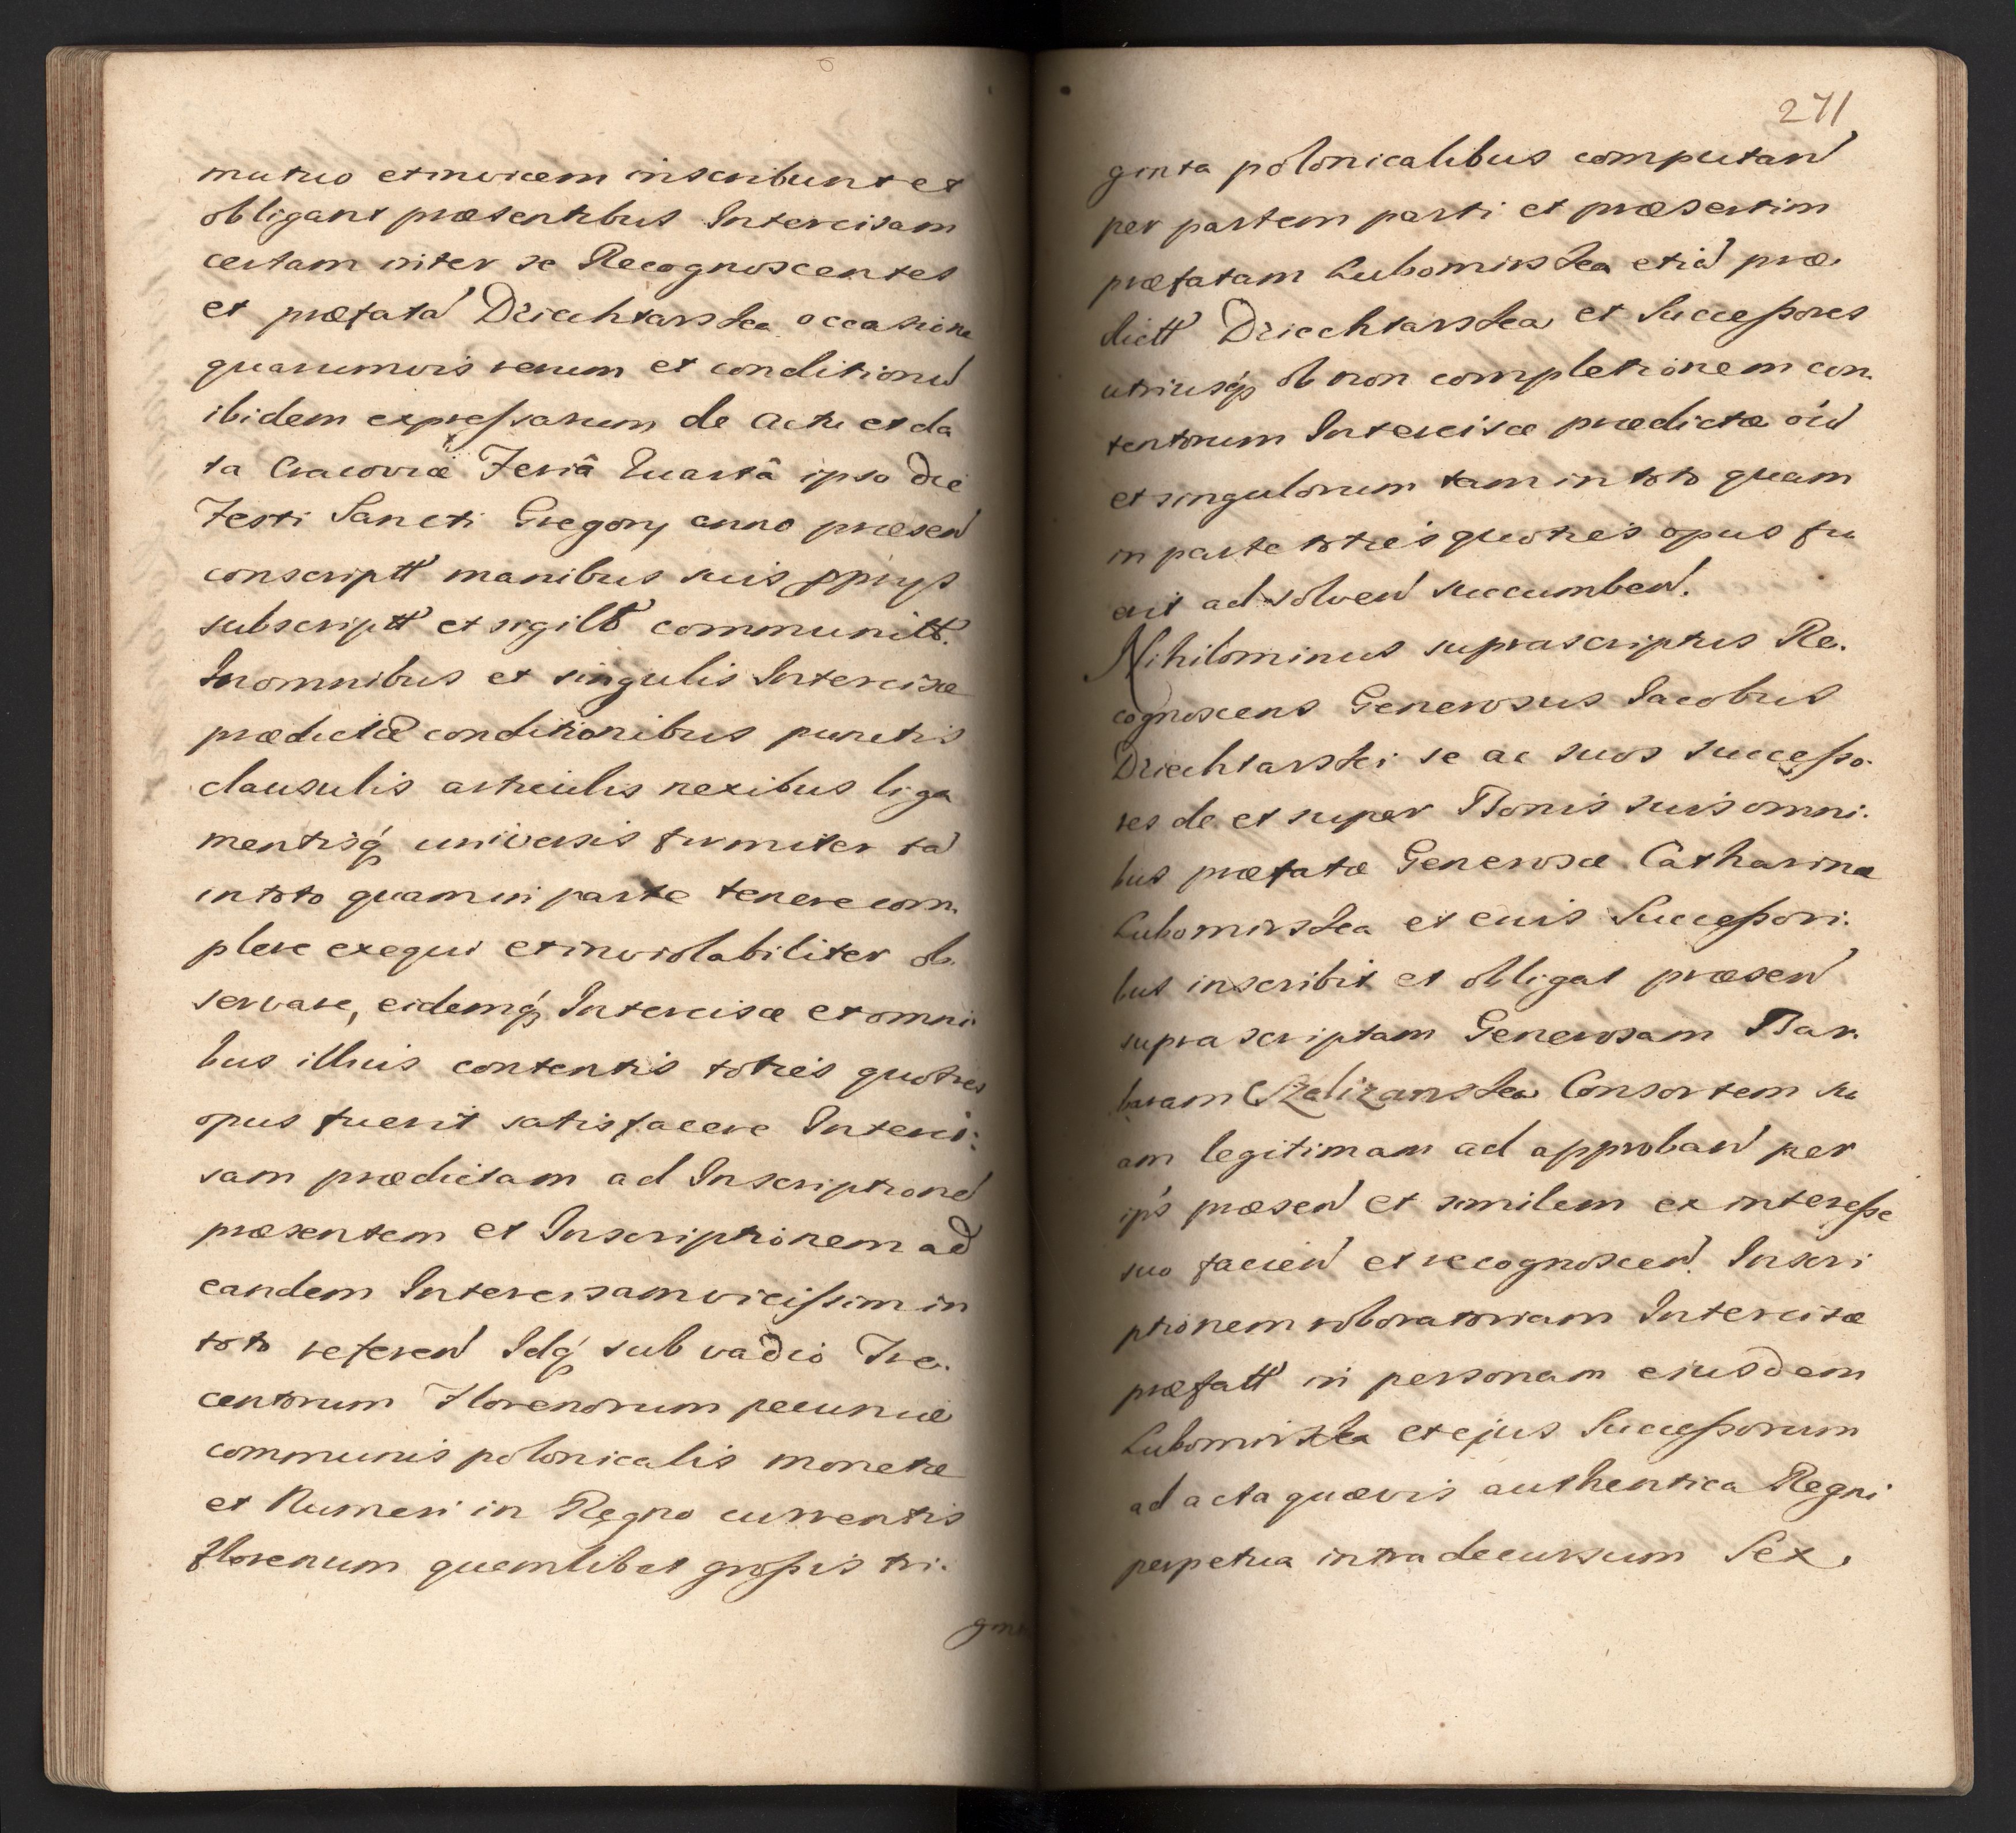 mutuo et invicem inscribunt et
obligant præsentibus Intercisam
certam inter se Recognoscentes
et præfatā Dziechtarska occasione
quarumvis rerum et conditionū
ibidem expressarum de actu et da
ta Cracoviæ Feriâ Quartâ ipso die
Festi Sancti Gregory anno præsen
conscriptt manibus suis pprijs
subscriptt et sigillt communitt.
In omnibus et singulis Intercisæ
prædictæ conditionibus punctis
clausulis articulis nexibus liga
mentisq universis firmiter tā
in toto quam in parte tenere com
plere exequi et inviolabiliter ob
servare, eidemq Intercisæ et omni
bus illius contentis toties quoties
opus fuerit satisfacere Interci:
sam prædictam ad Inscriptionē
præsentem et Inscriptionem ad
eandem Intercisam vicissim in
toto referen Idq sub vadio Tre.
centorum Florenorum pecuniæ
communis polonicalis monetæ
et Numeri in Regno currentis
florenum quemlibet grossis tri.
gin
271
ginta polonicalibus computan
per partem parti et præsertim
præfatam Lubomirska etiā præ.
dictt Dziechtarska et Successores
utriusq ob non completionem con.
tentorum Intercisæ prædictæ oīu
et singulorum tam in toto quam
in parte toties quoties opus fu
erit ad solven succumben.
Nihilominus suprascriptus Re.
cognoscens Generosus Jacobus
Dziechtarski se ac suos successo.
res de et super Bonis suis omni.
bus præfatæ Generosæ Catharinæ
Lubomirska et euis Successori.
bus inscribit et obligat præsen
suprascriptam Generosam Bar.
baram Szelizanska Consortem su
am legitimam ad approban per
ips præsen et similem ex interesse
suo facien et recognoscen Inscri
ptionem roboratoriam Intercisæ
præfatt in personam ejusdem
Lubomirska et ejus Successorum
ad acta quævis authentica Regni
perpetua intra decursum Sex.